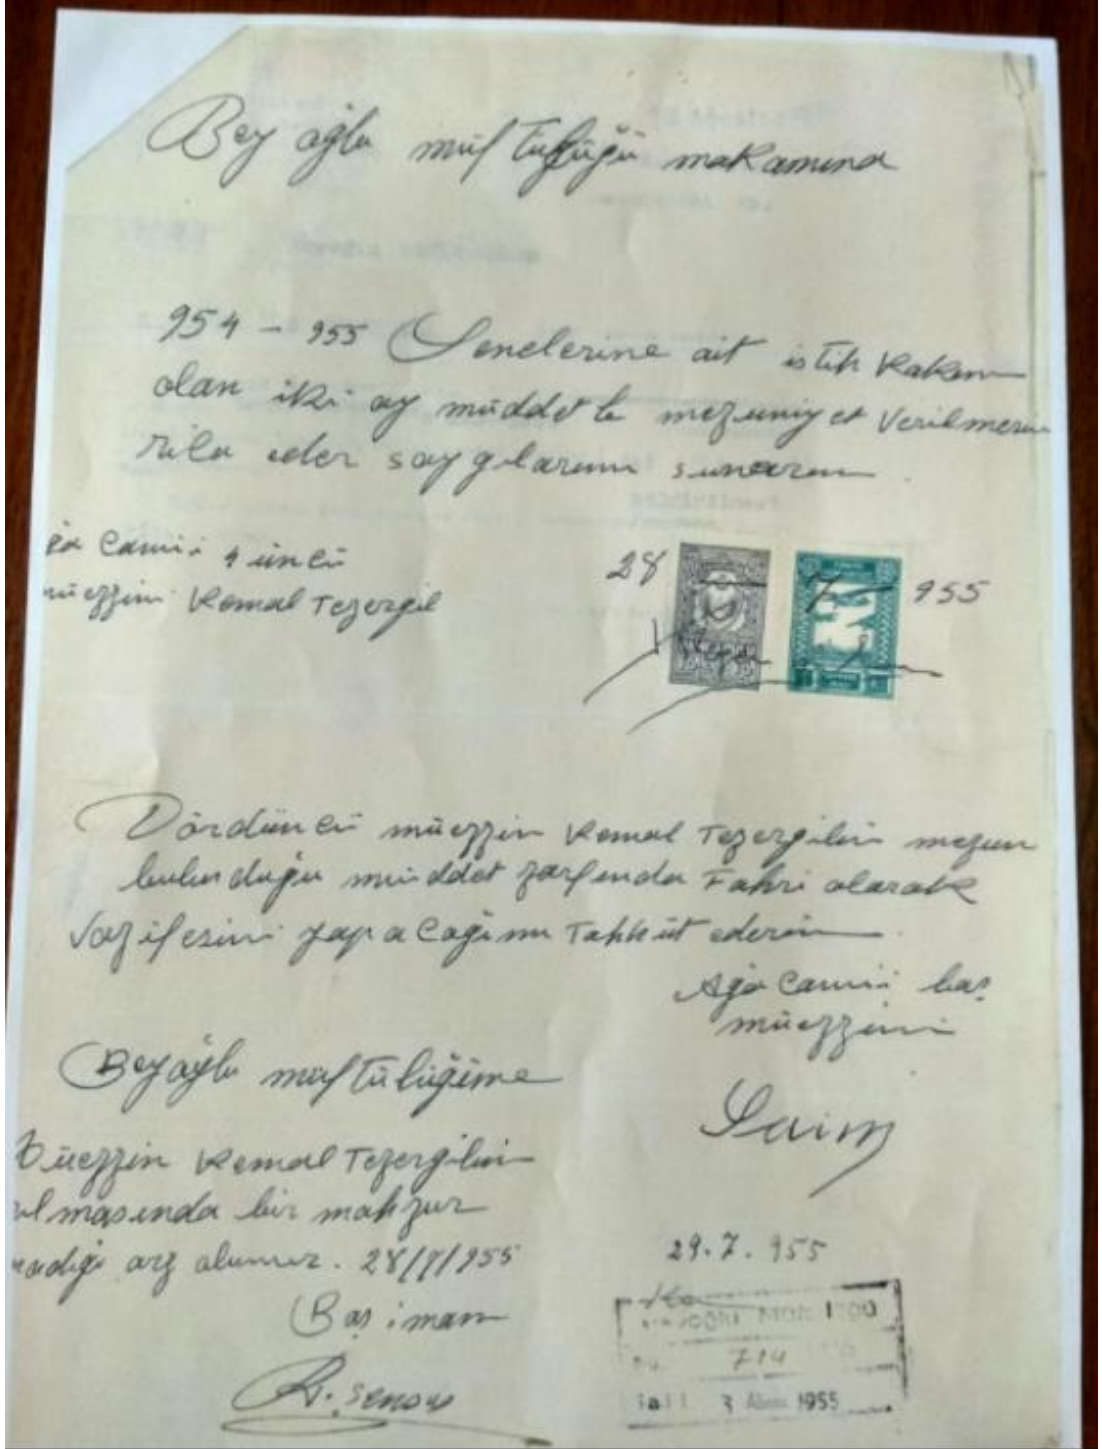 Bey oğlu müftülüğü makamına
954 - 955 Senelerine ait istih kakım
olan iki ay müddetle mezuniyet verilmesini
rila eder saygılarımı sunarım
Camii 4 üncü
müezzini Kemal Tezergil
28 7 955
Dördüncü müezzin Kemal Tezergilin mezun
bulunduğu müddet zarfında Fahri olarak
Vazifesini yapacağımı Tahhüt ederim
Ağa Camii baş
müezzini
Saim
Beyoğlu müftülüğüne
Müezzin Kemal Tezergilin
bir mahzur
arz olunur. 28/7/955
Baş imam
R. Şenoy
29.7.955
714
3 1955